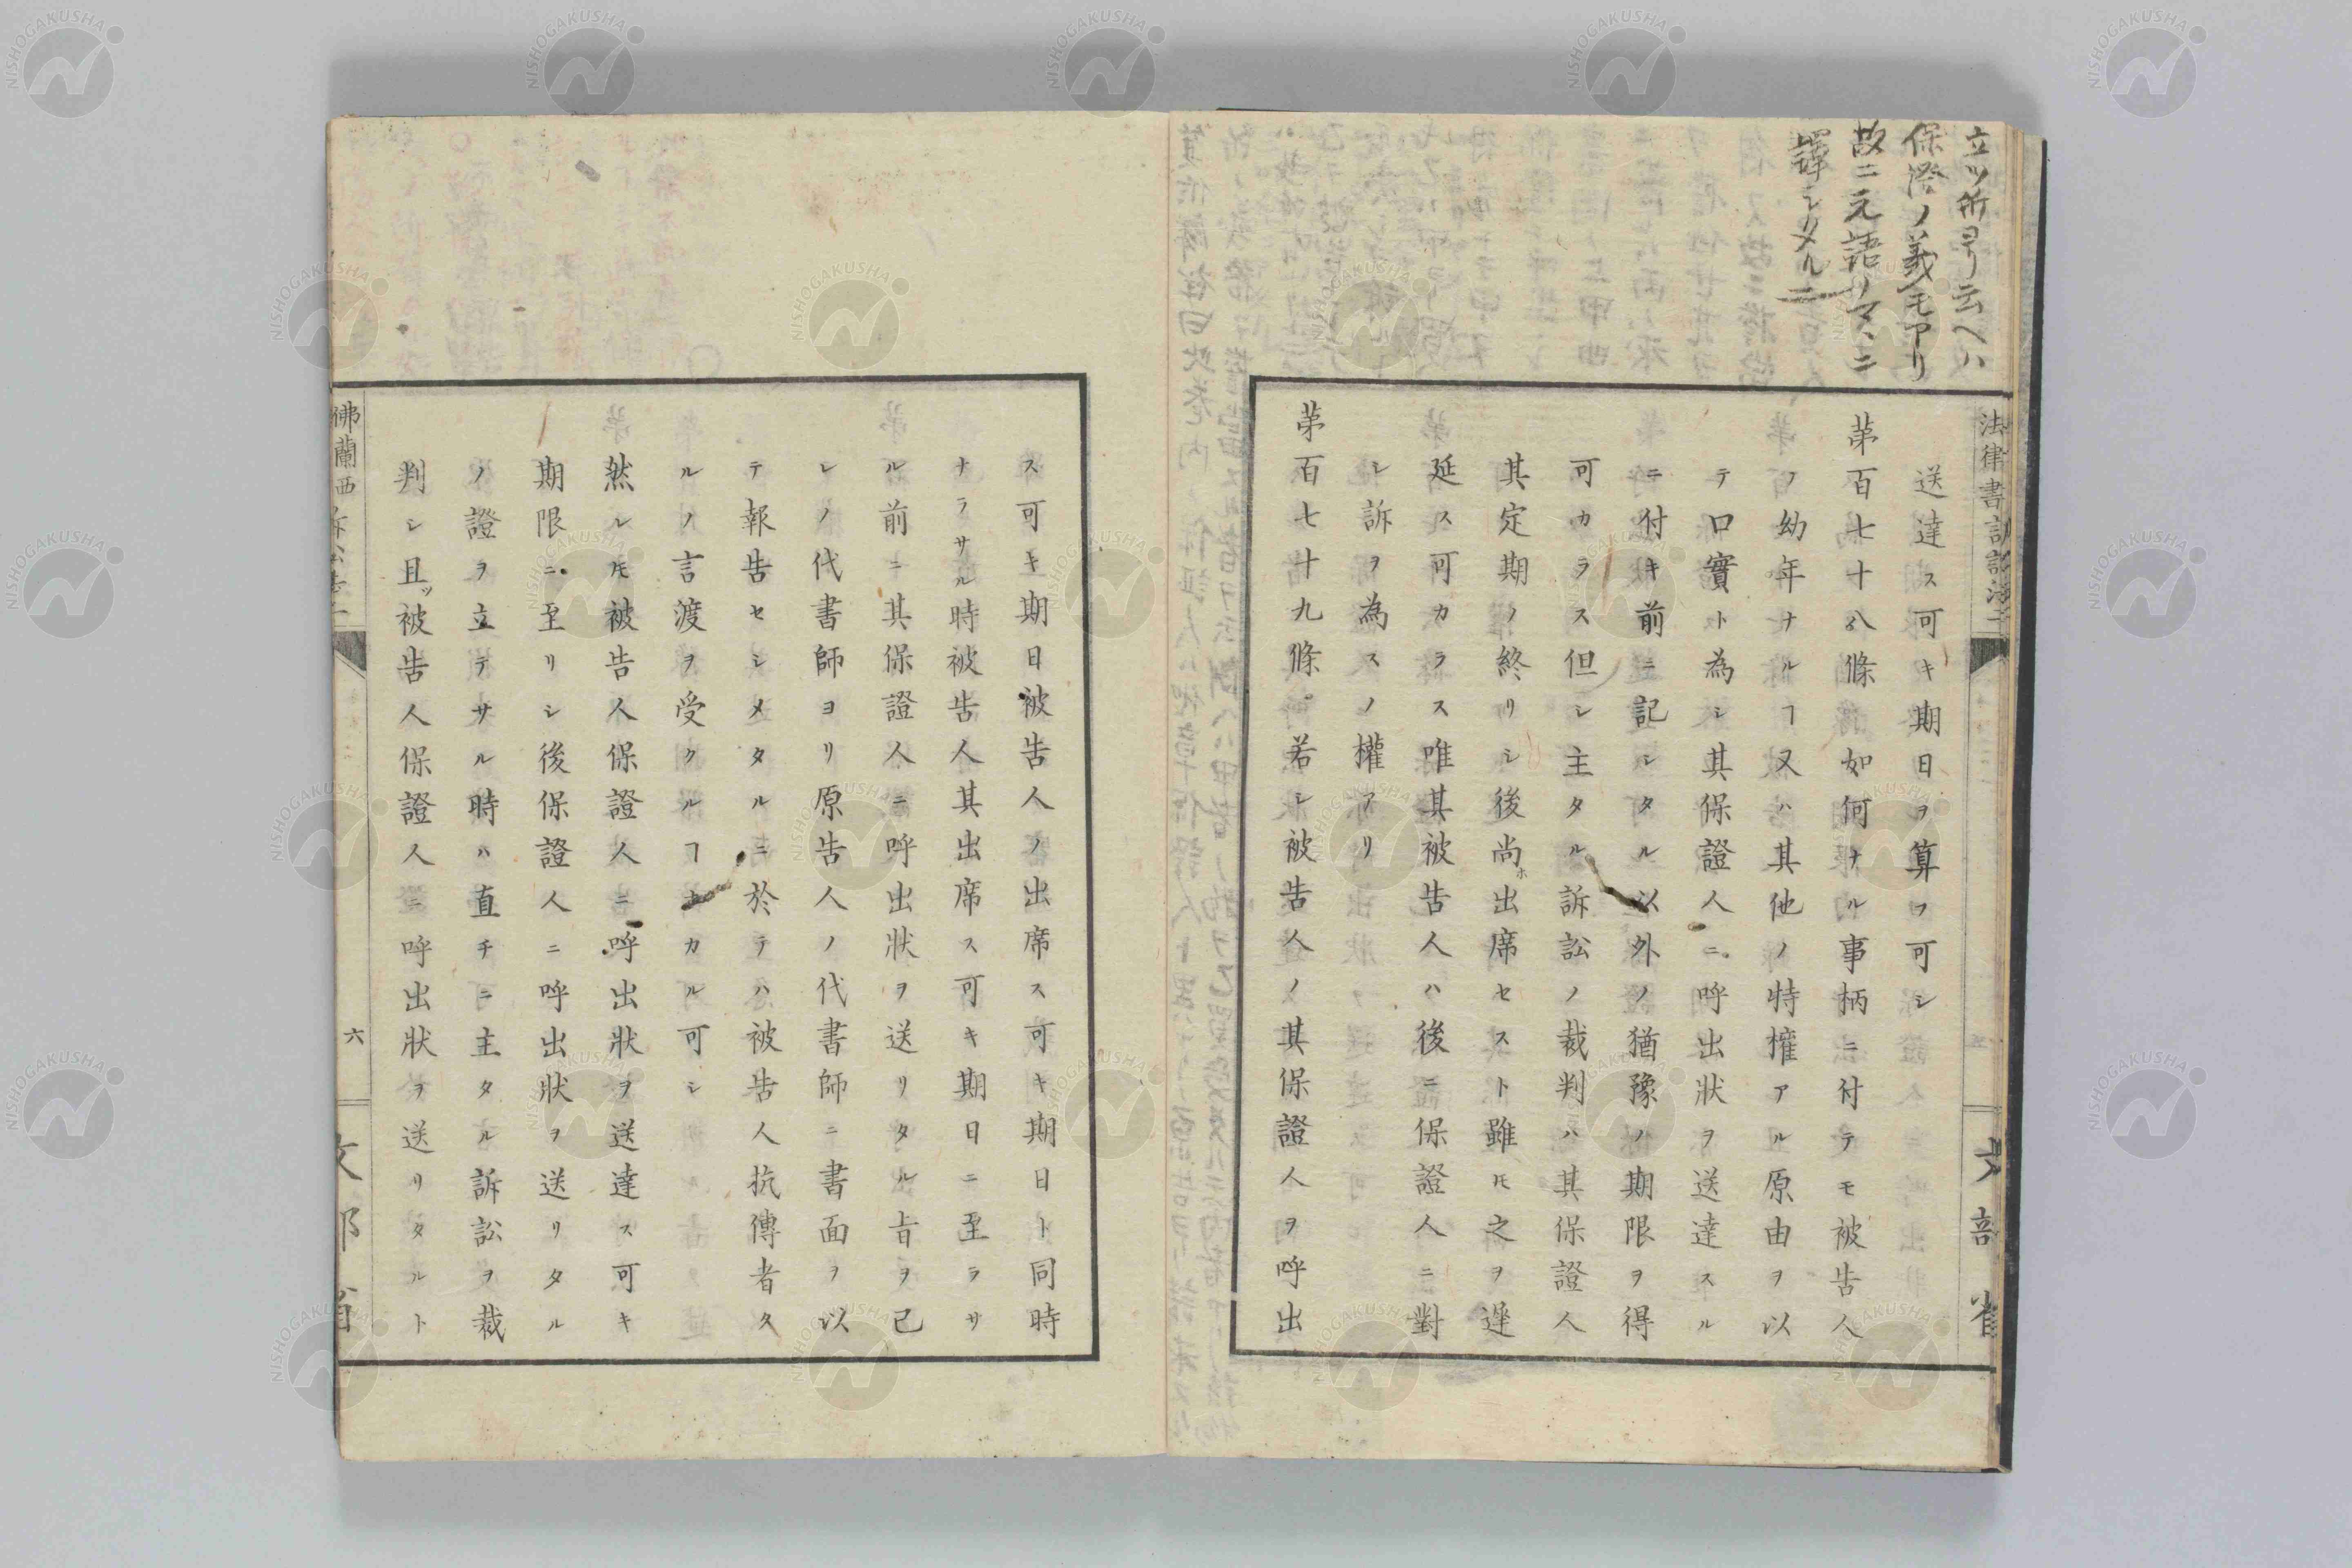 立ツ所ヨリ云ヘハ
保證ノ義モアリ
故ニ元語ノマヽニ
譯シタルニ
法律書訴訟法二
文部省
送達ス可キ期日ヲ算フ可シ
第百七十八條如何ナル事柄ニ付テモ被告人
ノ幼年ナルヿ又ハ其他ノ特權アル原由ヲ以
テ口實ト為シ其保證人ニ呼出狀ヲ送達スル
ニ付キ前ニ記シタル以外ノ猶豫ノ期限ヲ得
可カラス但シ主タル訴訟ノ裁判ハ其保證人
其定期ノ終リシ後尚ホ出席セスト雖𪜈之ヲ遲
延ス可カラス唯其被告人ハ後ニ保證人ニ對
シ訴ヲ為スノ權アリ
第百七十九條若シ被告人ノ其保證人ヲ呼出
ス可キ期日被告人ノ出席ス可キ期日ト同時
ナラサル時被告人其出席ス可キ期日ニ至ラサ
ル前ニ其保證人ニ呼出狀ヲ送リタル旨ヲ己
レノ代書師ヨリ原告人ノ代書師ニ書面ヲ以
テ報告セシメタルニ於テハ被告人抗傳者タ
ルノ言渡ヲ受クルヿナカル可シ
然ル𪜈被告人保證人ニ呼出狀ヲ送達ス可キ
期限ニ至リシ後保證人ニ呼出狀ヲ送リタル
ノ證ヲ立テサル時ハ直チニ主タル訴訟ヲ裁
判シ且ツ被告人保證人ニ呼出狀ヲ送リタルト
佛蘭西
六
文部省
NISHOGAKUSHA